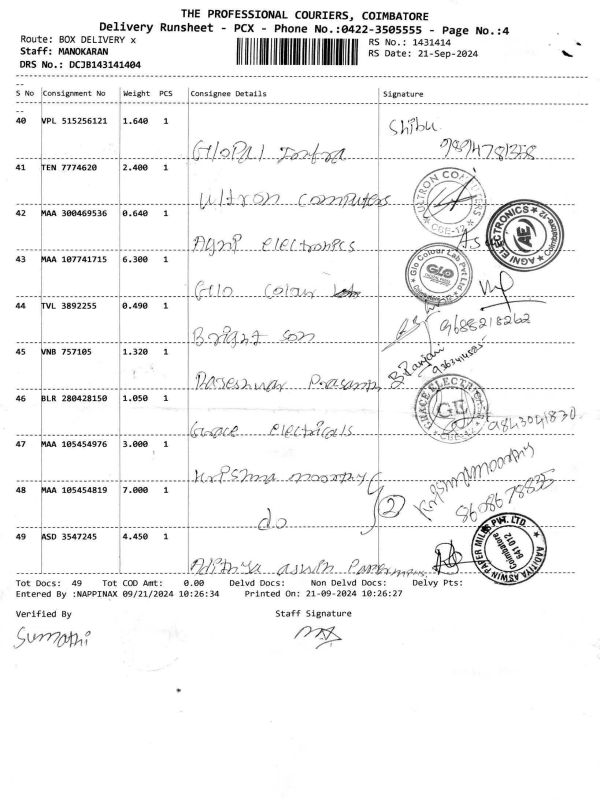 THE PROFESSIONAL COURIERS, COIMBATORE
Delivery Runsheet - PCX - Phone No.:0422-3505555 - Page No.:4
Route: BOX DELIVERY x
RS No.: 1431414
Staff: MANOKARAN
RS Date: 21-Sep-2024
DRS No.: DCJB143141404
S No Consignment No Weight PCS Consignee Details Signature
40 VPL 515256121 1.640 1 Shibu
Glopal Infra
41 TEN 7774620 2.400 1
Ultron computers
ULTRON COMPUTERS
CBE-12
42 MAA 300469536 0.640 1
Agni electronics
AGNI ELECTRONICS
AE
Coimbatore-12
43 MAA 107741715 6.300 1
Glo Colour Lab
Glo Colour Lab Pvt Ltd
GLO
44 TVL 3892255 0.490 1
Bright son 9688218262
45 VNB 757105 1.320 1
Rajeshwar Prasanth
46 BLR 280428150 1.050 1
Grace electricals 9843041830
GRACE ELECTRICALS
GE
CBE-12
47 MAA 105454976 3.000 1
48 MAA 105454819 7.000 1
do 2
49 ASD 3547245 4.450 1
Adithya aswin Papermills
AADITIYA ASWIN PAPER MILLS PVT. LTD.
Coimbatore
641 012
Tot Docs: 49 Tot COD Amt: 0.00 Delvd Docs: Non Delvd Docs: Delvy Pts:
Entered By :NAPPINAX 09/21/2024 10:26:34 Printed On: 21-09-2024 10:26:27
Verified By Staff Signature
Sumathi